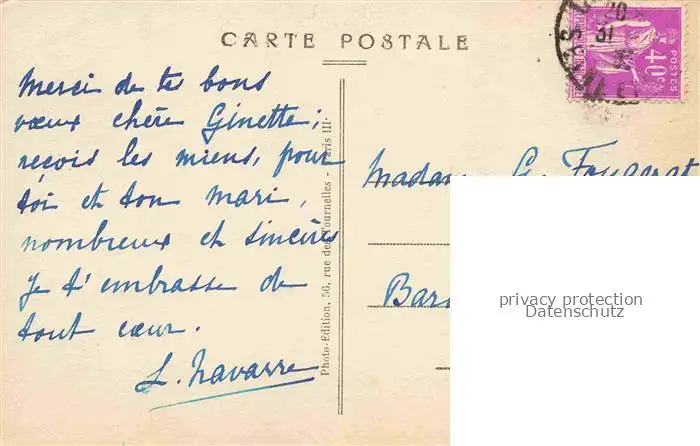 CARTE POSTALE
40c
POSTES
Merci de tes bons
vœux chère Ginette;
reçois les miens, pour
toi et ton mari,
nombreux et sincères
Je t'embrasse de
tout cœur.
L. Navarre
Photo-Edition, 56, rue des Tournelles - Paris III
Madame G. Fougerat
Bar
privacy protection
Datenschutz